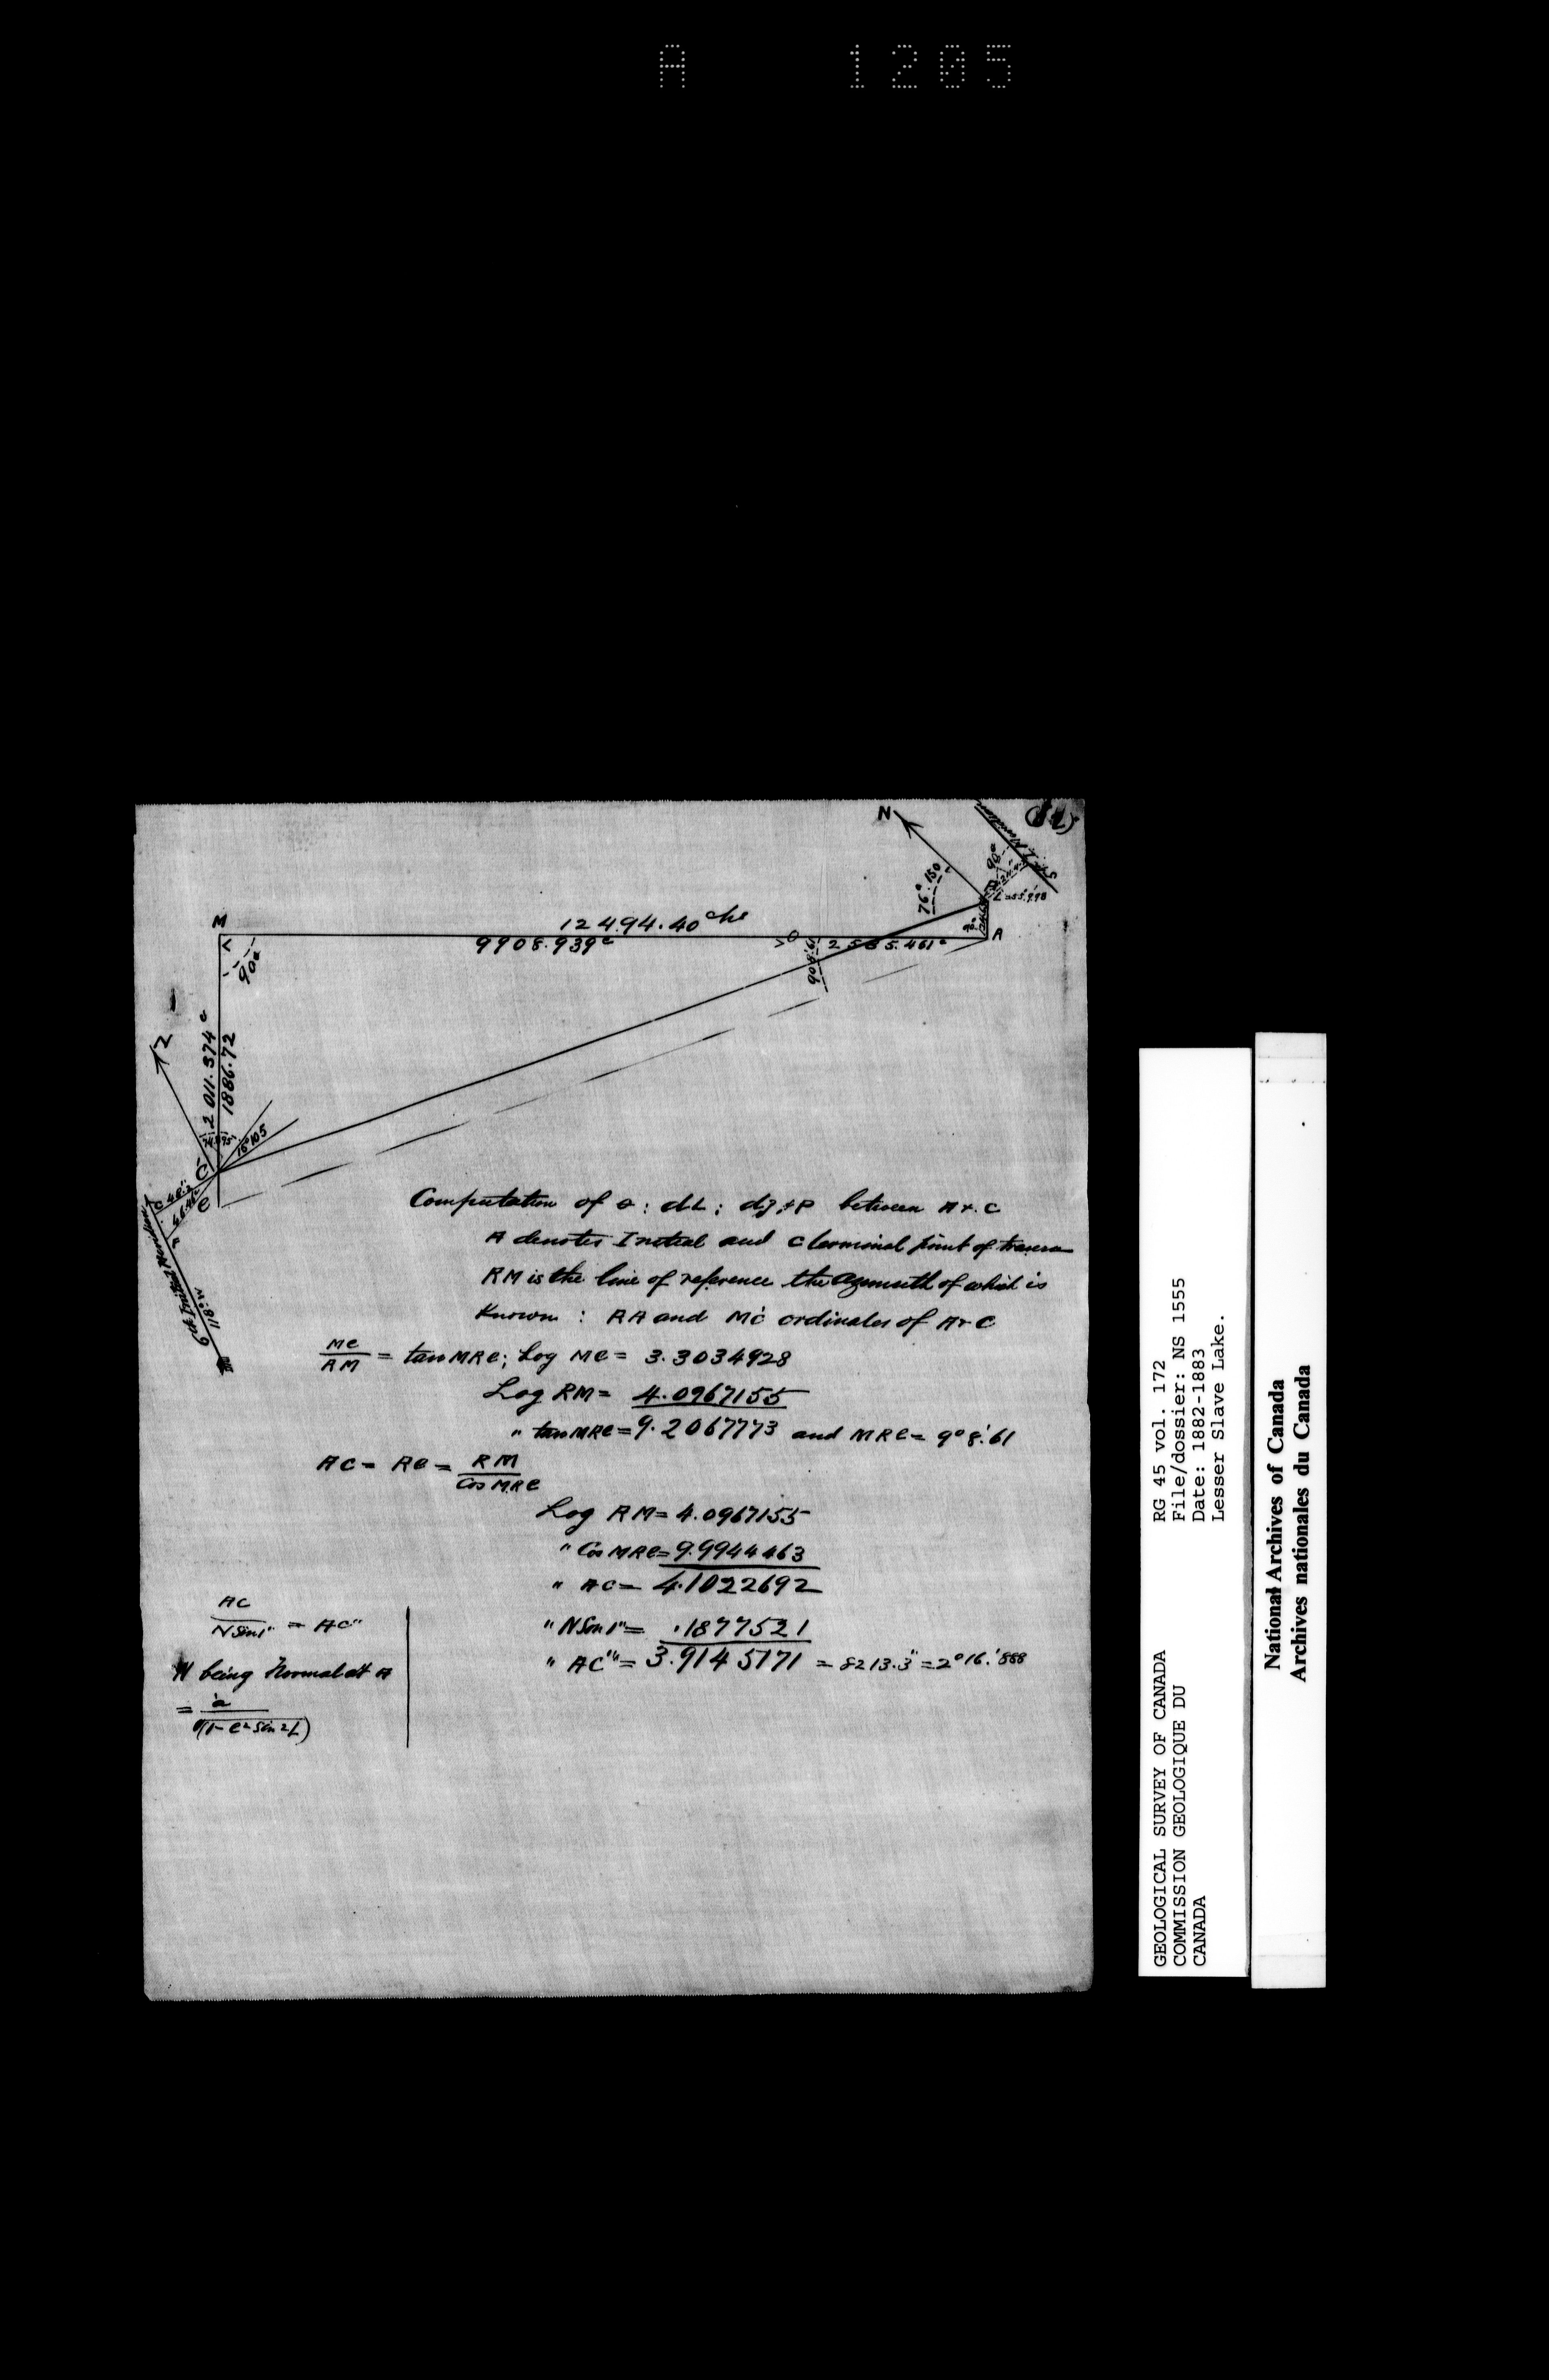 A 1205
N
76° 150
90°
L = 55°.798
R
A
M
12494.40 chs
9908.939c
2585.461c
O
9°8'.61
90°
2011.374c
1886.72
15°105
C
6th Initial Meridian
118° W
Computation of θ : dL : dz + P between A & C
A denotes Initial and C terminal point of traverse
RM is the line of reference the azimuth of which is
Known : RA and MC ordinates of A & C
MC/RM = tan MRC; Log MC = 3.3034928
Log RM = 4.0967155
" tan MRC = 9.2067773 and MRC = 9°8'.61
AC = RC = RM/Cos MRC
Log RM = 4.0967155
" Cos MRC = 9.9944463
" AC = 4.1022692
AC/N Sin 1" = AC"
" N Sin 1" = .1877521
" AC" = 3.9145171 = 8213.3" = 2°16.'888
N being Normal at A
= a/√(1-e² Sin ²L)
GEOLOGICAL SURVEY OF CANADA
COMMISSION GEOLOGIQUE DU
CANADA
RG 45 vol. 172
File/dossier: NS 1555
Date: 1882-1883
Lesser Slave Lake.
National Archives of Canada
Archives nationales du Canada